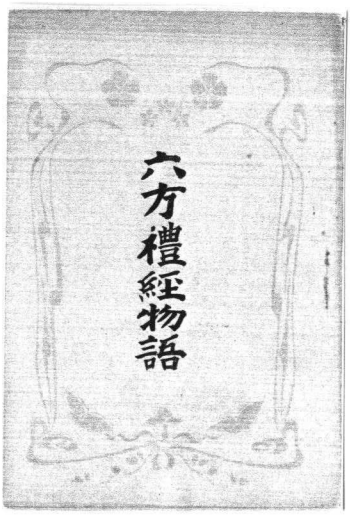 六方禮經物語